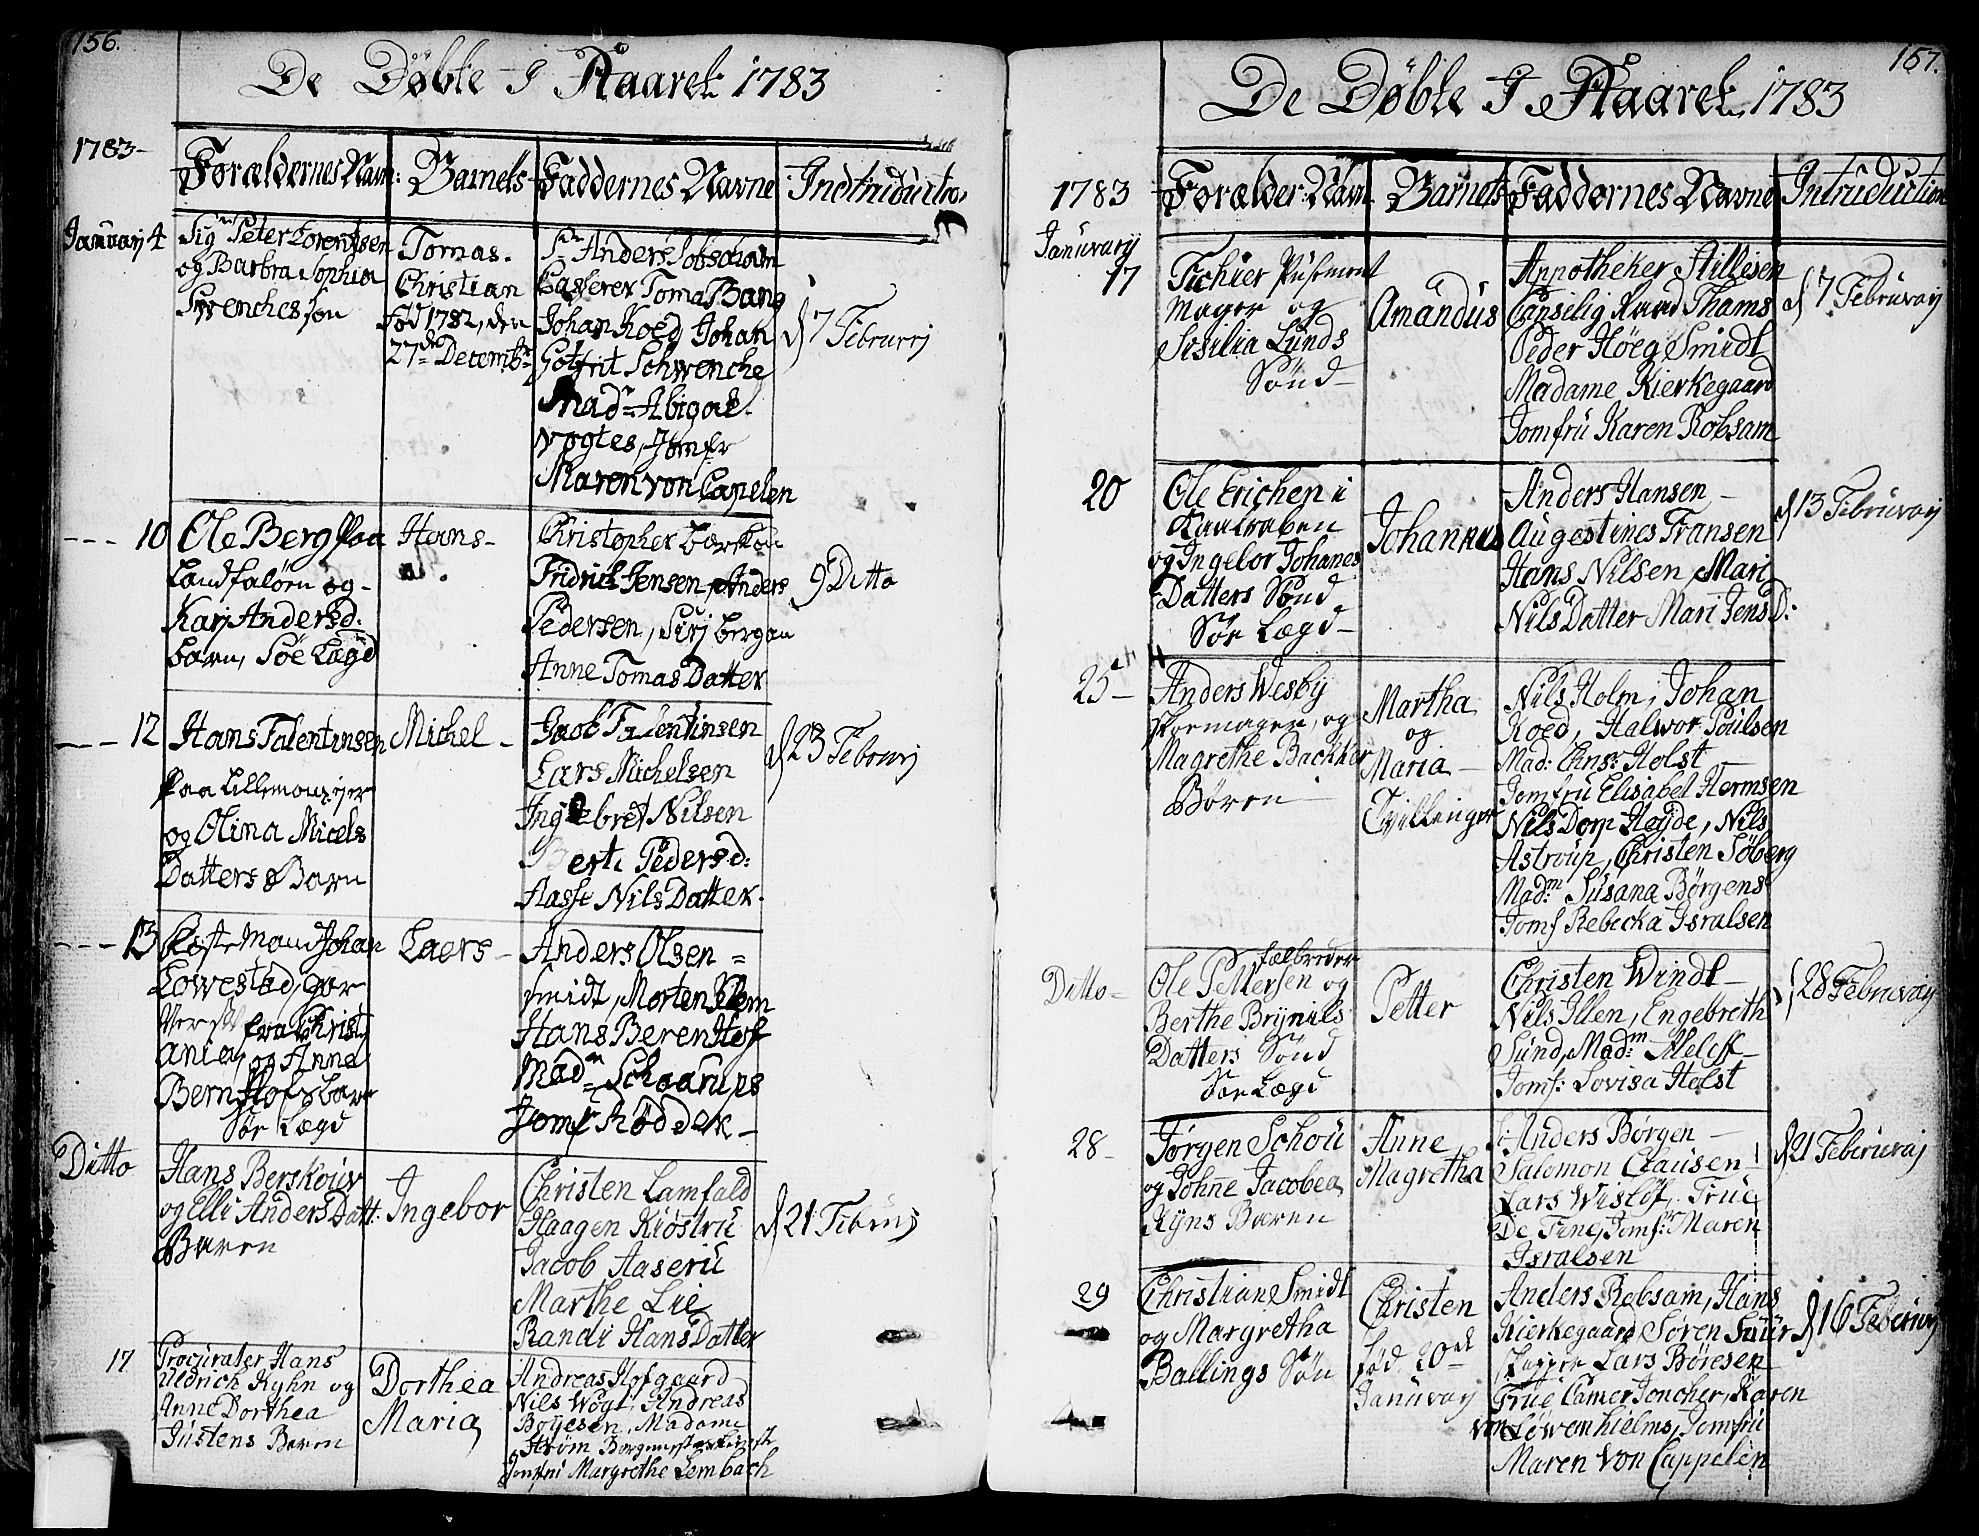 156.
De Døbte I Aaret 1783
1783-
Forældernes Navn: Barnets Faddernes Navne Indtruductio
Januarij 4
Sigr Peter Lorentsen
og Barbra Sophia
Swenches søn
Tomas.
Christian
Fød 1782, den
27de Decembr
Sr Anders Robsaham
Casserer Toma Bang
Johan Koed Johan
Gotfrit Schwenche
Madm Abigael
Vogtes, Jomfr
Maren von Capelen
d 7 Februrij
10
Ole Berg paa
Landfaløen og
Kari Andersd:
barn, Søe Lægd
Hans
Christopher
Fridrich Jensen, Anders
Pedersen, Siri Bergan
Anne Tomas Datter
9 Ditto
12
Hans Falentinsen
paa Lillemoursejer
og Olina Micels
Datters Barn
Michel
Jacob Falentinsen
Lars Michelsen
Ingebret Nilsen
Berte Pedersd:
Aasse Nils Datter.
d 23 Februrij
13
Johan
Lowestad,
fra Christi
ania, og Anne
Bern Hofs barn
Sør Lægd
Laers
Anders Olsen =
Smidt, Morten Klem
Hans Beren Hof
Madm Schaarups
Jomf Rødder
Ditto
Hans Berskouv
og Elli Anders Datt:
Baren
Ingebor
Christen Lamfald
Haagen Kiøstru
Jacob Aaserü
Marthe Lie
Randi Hans Datter
d 21 Februrij
17
Procurater Hans
Uldrich Kyhn og
Anne Dorthea
Justens Baren
Dorthea
Maria
Andreas Hofgaard
Nils Wogt, Andreas
Boyesen, Madame
Strøm
Jomfru Margrethe Lembach
157.
De Døbte I Aaret 1783
1783 Forælder: Navn Barnets Faddernes Navne Intruduction
Januvarij
17
Fichier Pusement
Mager og
Sisilia Lunds
Sønd
Amandus
Appotheker Aillesen
Canselig Raad Thams
Peder Høeg Smidt
Madame Kierkegaard
Jomfrü Karen Robsam
d 7 Februvarij
20
Ole Erichen i
Kaalraben
og Ingebor Johanes
Datters Sønd
Sør Lægd
Johannes
Anders Hansen
Augestines Fransen
Hans Nilsen Mari
Nils Datter Mari Jens D:
d 13 Februvarij
25
Anders Wesby
Skomager, og
Magrethe Backker
Børen
Martha
og
Maria
Tvillinger
Nils Holm, Johan
Koed, Halwor Poulsen
Mad: Ens: Holst
Jomfru Elisabet Hermsen
Nils Dorp Høyde, Nils
Astroup, Christen Søberg
Madm Susana Børgens
Jomf Rebecka Isralsen
Ditto
Ole Pettersen og
Berthe Brynils
Datters Sønd
Sør Lægd
Petter
Christen Windt
Nils Illen, Engebreth
Sund, Madm Meleff
Jomf: Lovisa Holst
d 28 Februvarij
28
Jørgen Schou
og Johne Jacobea
Kyns Baren
Anne
Magretha
Anders Børgen
Salomon Clausen
Lars Wisløf, Frue
De Fine, Jomfr Maren
Isralsen
d 21 Februvarij
29
Christian Smidt
og Margretha
Ballings Søn
Christen
Fød 20de
Januvarij
Anders Robsam, Hans
Kierkegaard, Søren Fuür
Skipper Lars Børesen
Frue Camer Joncher, Karen
von Løwenhielms, Jomfru
Maren von Cappelen
d 16 Februrij